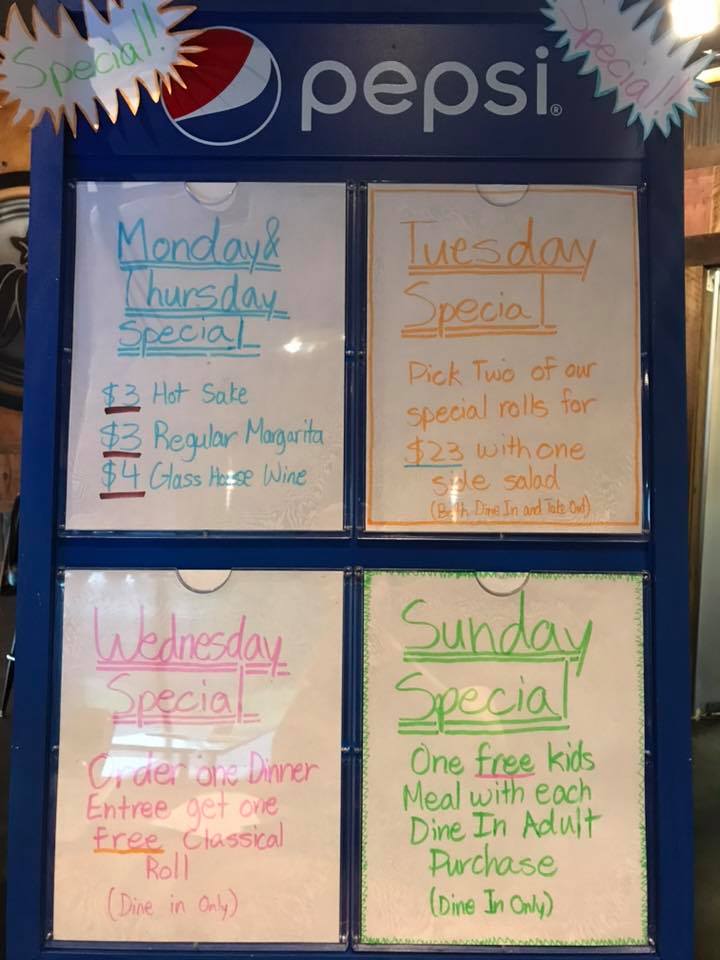 Special!
Special!
pepsi®
Monday &
Thursday
Special
$3 Hot Sake
$3 Regular Margarita
$4 Glass House Wine
Tuesday
Special
Pick Two of our
special rolls for
$23 with one
side salad
(Both Dine In and Take Out)
Wednesday
Special
Order one Dinner
Entree get one
free Classical
Roll
(Dine in Only)
Sunday
Special
One free kids
Meal with each
Dine In Adult
Purchase
(Dine In Only)